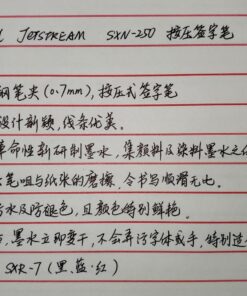 JETSTREAM SXN-250 按压签字笔
钢笔夹(0.7mm),按压式签字笔
设计新颖,线条优美。
革命性新研制墨水,集颜料及染料墨水之
笔咀与纸张的磨擦,令书写顺滑无比。
防水及防褪色,且颜色特别鲜艳。
墨水立即变干,不会弄污字体或手,特别适
SXR-7(黑.蓝.红)